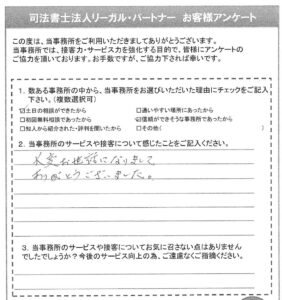 司法書士法人リーガル・パートナー お客様アンケート
この度は、当事務所をご利用いただきましてありがとうございます。
当事務所では、接客力・サービス力を強化する目的で、皆様にアンケートの
ご協力を頂いております。お手数ですが、ご協力下されば幸いです。
1. 数ある事務所の中から、当事務所をお選びいただいた理由にチェックをご記入
下さい。(複数選択可)
☑土日の相談ができたから □通いやすい場所にあったから
□初回無料相談であったから ☑信頼ができそうな事務所であったから
□知人から紹介された・評判を聞いたから □その他(
2. 当事務所のサービスや接客について感じたことをご記入ください。
大変お世話になりまして
ありがとうございました。
3. 当事務所のサービスや接客についてお気に召さない点はありません
でしたでしょうか?今後のサービス向上の為、ご遠慮なくご指摘ください。